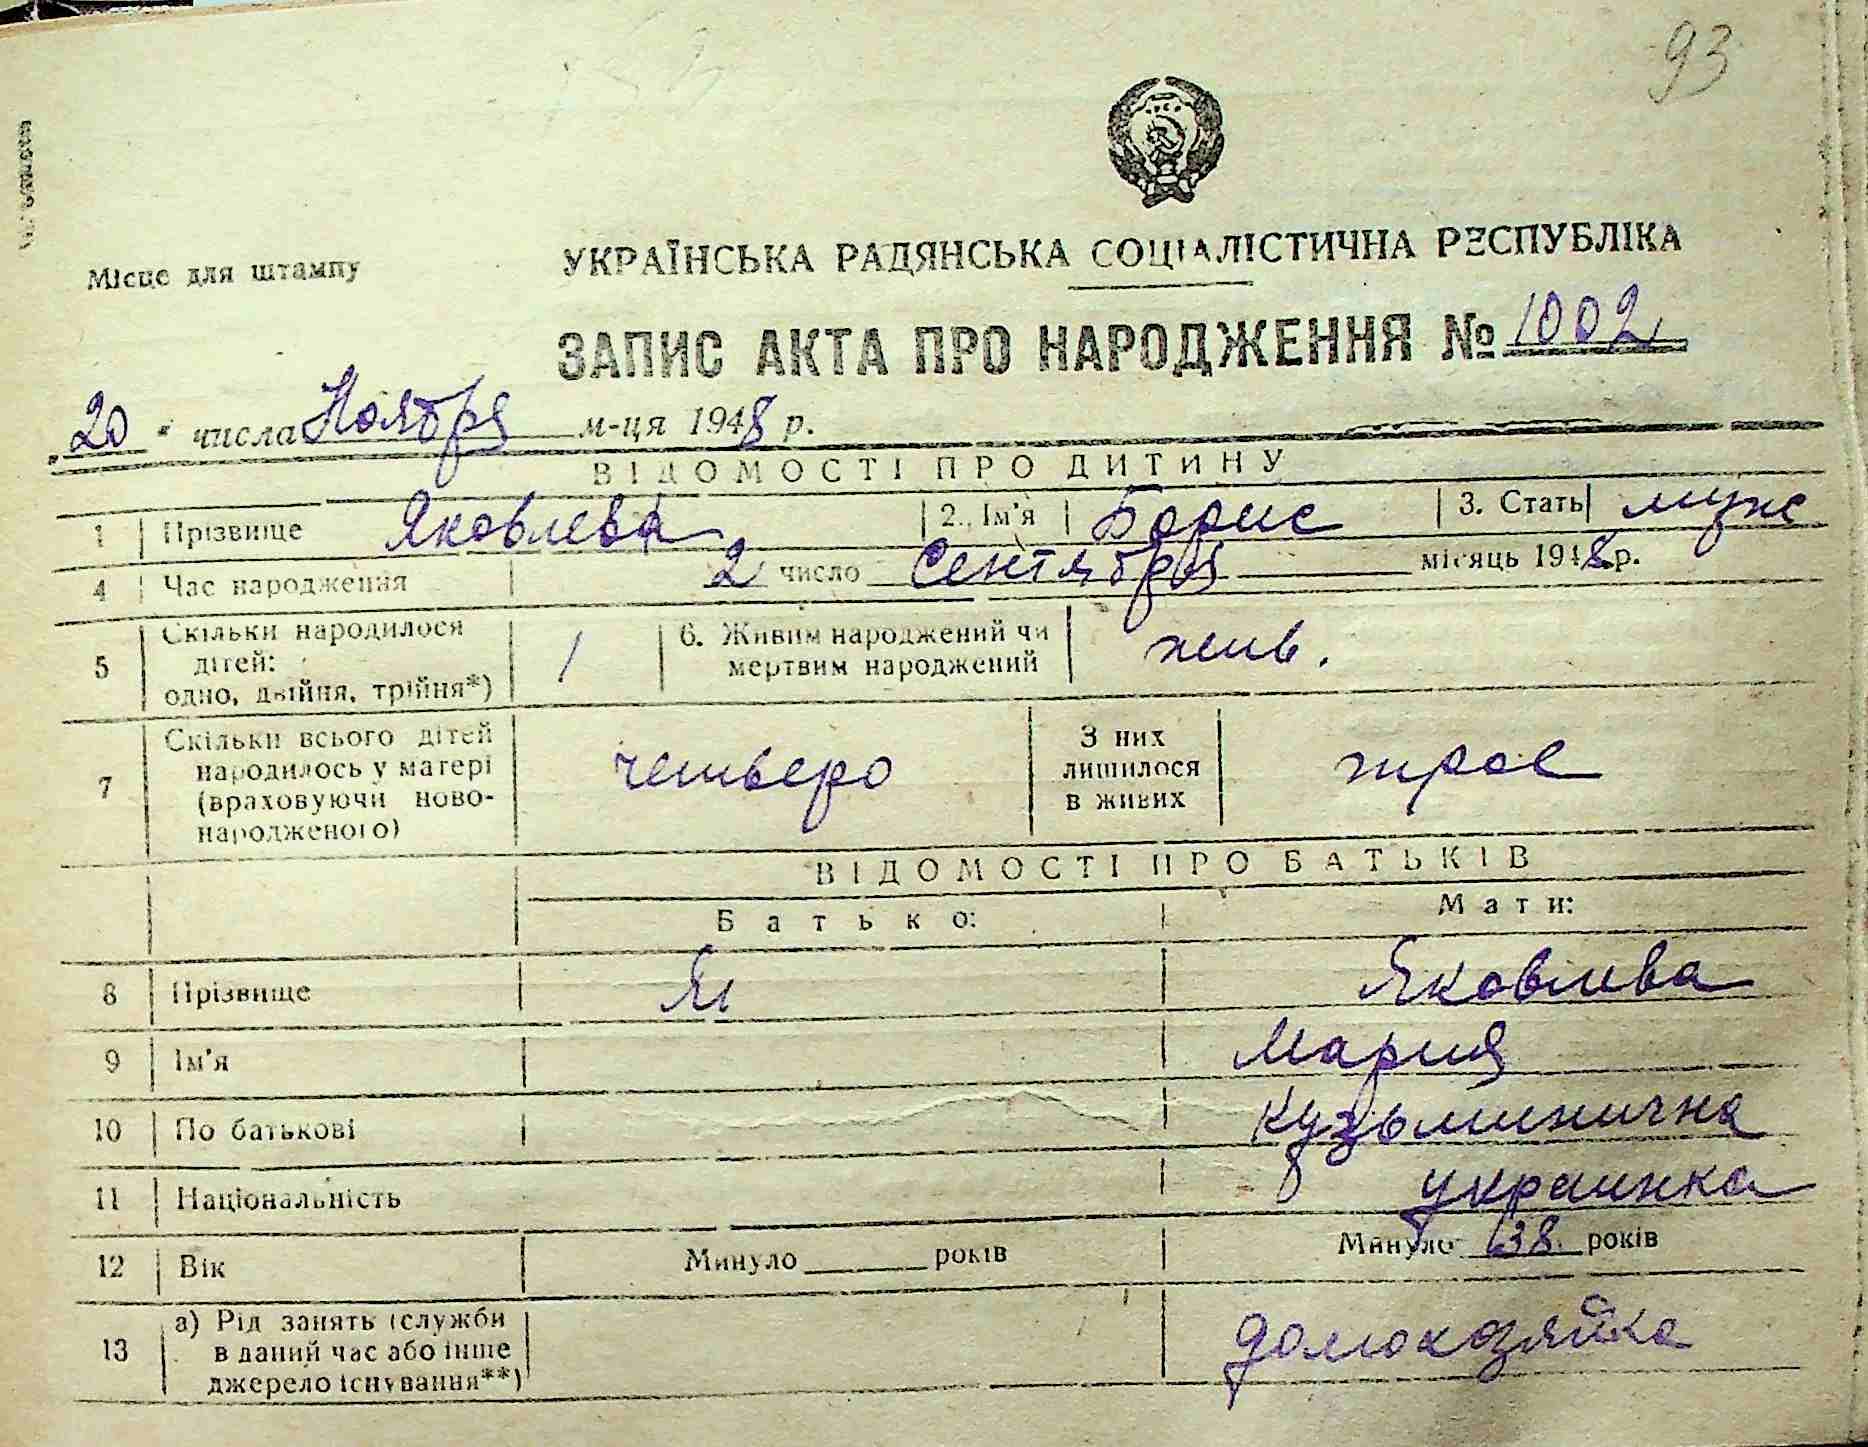 93
Місце для штампу
УКРАЇНСЬКА РАДЯНСЬКА СОЦІАЛІСТИЧНА РЕСПУБЛІКА
ЗАПИС АКТА ПРО НАРОДЖЕННЯ № 1002
„20“ числа Ноября м-ця 1948 р.
ВІДОМОСТІ ПРО ДИТИНУ
1 Прізвище Яковлева 2. Ім'я Борис 3. Стать муж
4 Час народження 2 число Сентября місяць 1948 р.
5 Скільки народилося дітей: одно, двійня, трійня*) 1 6. Живим народжений чи мертвим народжений жив.
7 Скільки всього дітей народилось у матері (враховуючи новонародженого) четверо З них лишилося в живих трое
ВІДОМОСТІ ПРО БАТЬКІВ
Батько: Мати:
8 Прізвище Яковлева
9 Ім'я Мария
10 По батькові Кузьминична
11 Національність украинка
12 Вік Минуло ______ років Минуло 38 років
13 а) Рід занять (служби в даний час або інше джерело існування**) домохозяйка